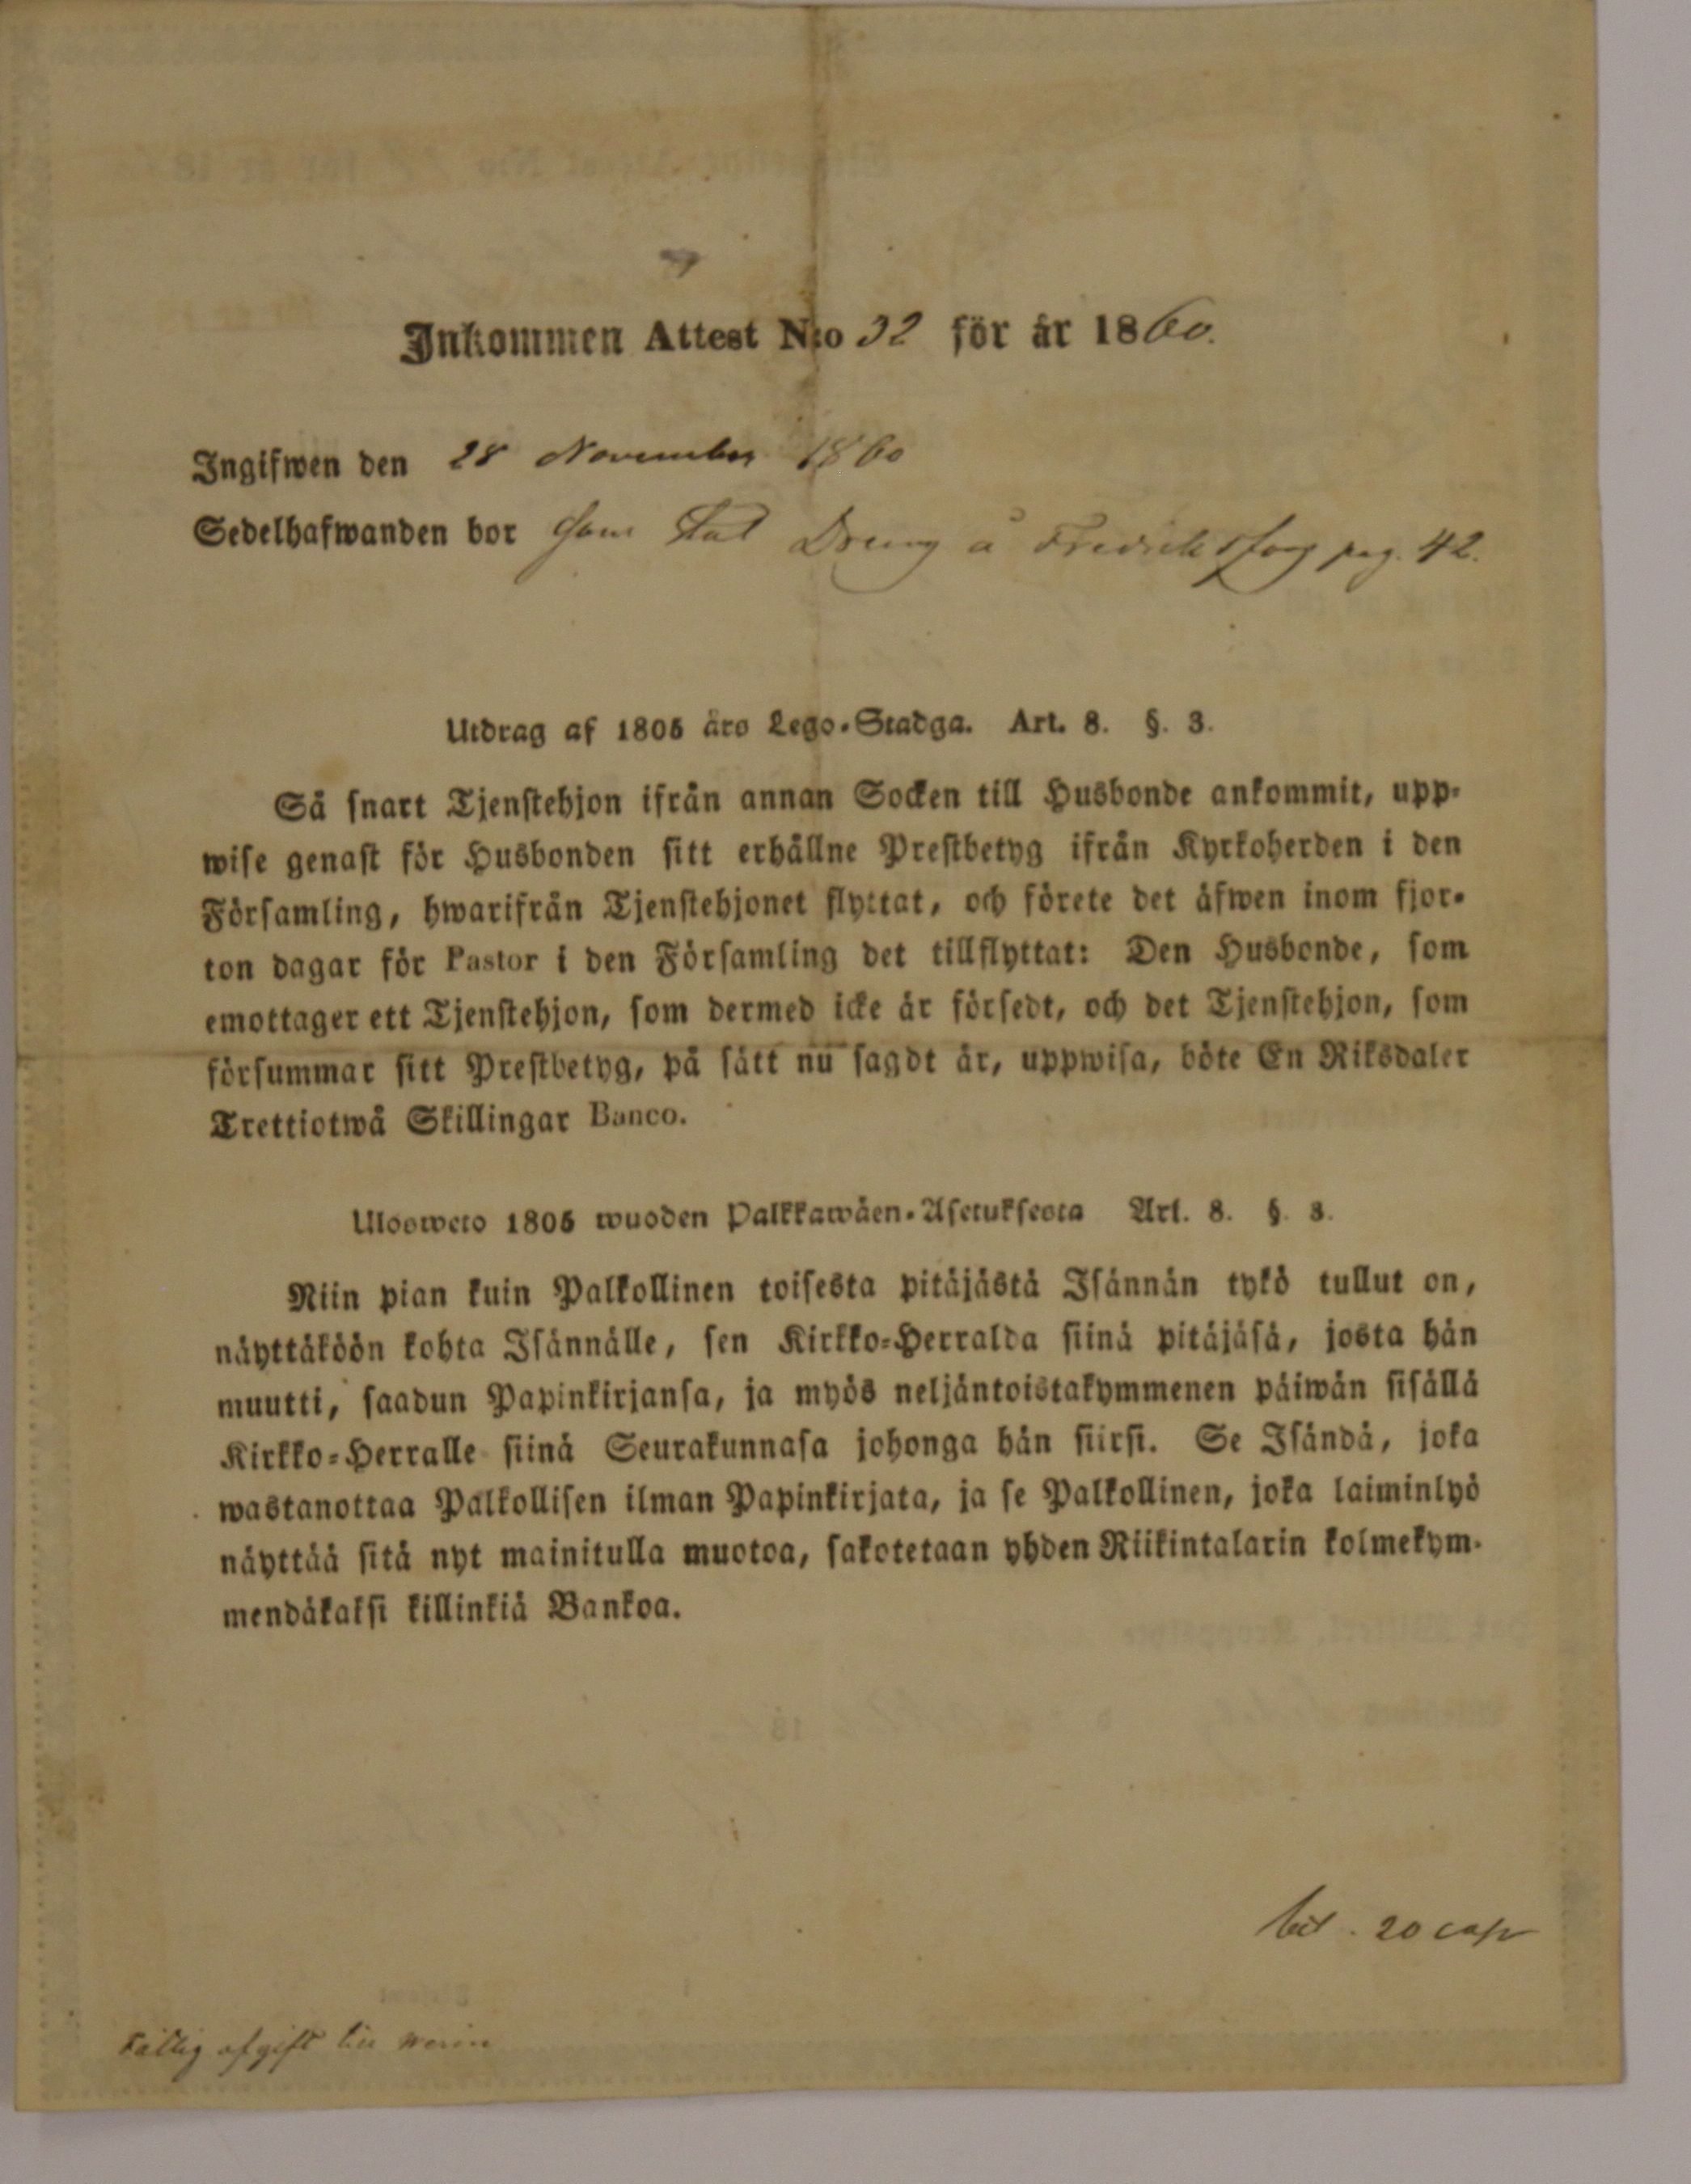 Inkommen Attest N:o 32 för år 1860.
Ingifwen den 28 November 1860
Sedelhafwanden bor som Stat Dreng å Fredriksforß pag. 42.
Utdrag af 1805 års Lego-Stadga. Art. 8. §. 3.
Så snart Tjenstehjon ifrån annan Socken till Husbonde ankommit, upp-
wise genast för Husbonden sitt erhållne Prestbetyg ifrån Kyrkoherden i den
Församling, hwarifrån Tjenstehjonet flyttat, och förete det äfwen inom fjor-
ton dagar för Pastor i den Församling det tillflyttat: Den Husbonde, som
emottager ett Tjenstehjon, som dermed icke är försedt, och det Tjenstehjon, som
försummar sitt Prestbetyg, på sätt nu sagdt är, uppwisa, böte En Riksdaler
Trettiotwå Skillingar Banco.
Ulosweto 1805 wuoden Palkkawäen-Asetuksesta Art. 8. §. 3.
Niin pian kuin Palkollinen toisesta pitäjästä Isännän tykö tullut on,
näyttäköön kohta Isännälle, sen Kirkko-Herralda siinä pitäjäsä, josta hän
muutti, saadun Papinkirjansa, ja myös neljäntoistakymmenen päiwän sisällä
Kirkko-Herralle siinä Seurakunnasa johonga hän siirsi. Se Isändä, joka
wastanottaa Palkollisen ilman Papinkirjata, ja se Palkollinen, joka laiminlyö
näyttää sitä nyt mainitulla muotoa, sakotetaan yhden Riikintalarin kolmekym-
mendäkaksi killinkiä Bankoa.
bet. 20 cop
Fattig afgift till